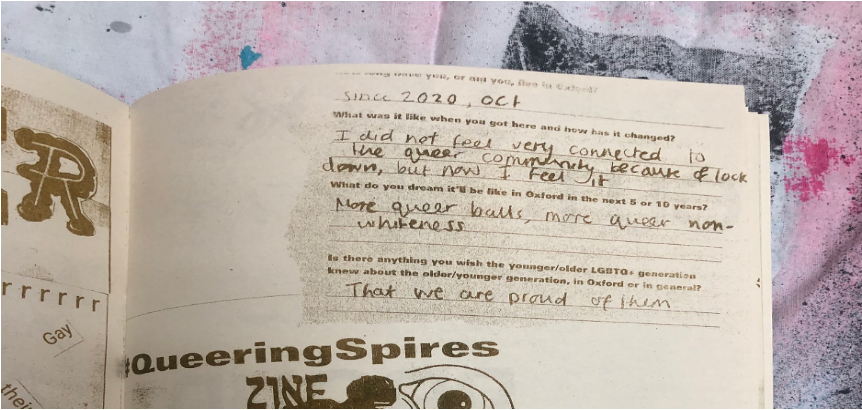 R
r r r r r r
Gay
their
long have you, or did you, live in Oxford?
since 2020, Oct
What was it like when you got here and how has it changed?
I did not feel very connected to
the queer community because of lock
down, but now I feel it
What do you dream it'll be like in Oxford in the next 5 or 10 years?
More queer balls, more queer non-
whiteness
Is there anything you wish the younger/older LGBTQ+ generation
knew about the older/younger generation, in Oxford or in general?
That we are proud of them
#QueeringSpires
ZINE